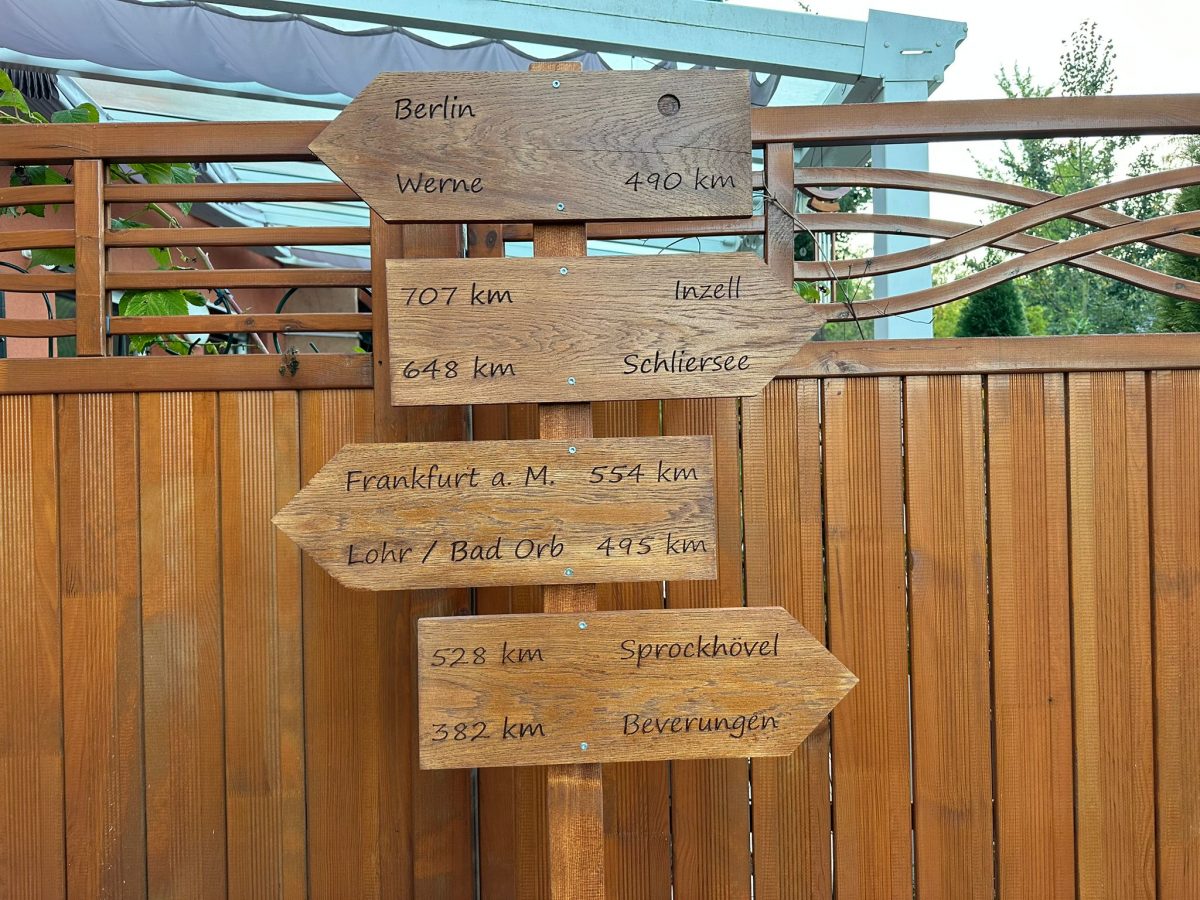 Berlin
Werne 490 km
707 km Inzell
648 km Schliersee
Frankfurt a. M. 554 km
Lohr / Bad Orb 495 km
528 km Sprockhövel
382 km Beverungen